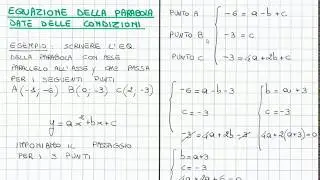 EQUAZIONE DELLA PARABOLA
DATE DELLE CONDIZIONI
ESEMPIO: SCRIVERE L'EQ.
DELLA PARABOLA CON ASSE
PARALLELO ALL'ASSE y CHE PASSA
PER I SEGUENTI PUNTI
A(-1,-6) B(0,-3) C(2,-3)
y = ax²+bx+c
IMPONIAMO IL PASSAGGIO
PER I 3 PUNTI
PUNTO A -6 = a-b+c
PUNTO B -3 = c
PUNTO C -3 = 4a+2b+c
-6 = a-b-3
c = -3
-3 = 4a+2b-3
b = a+3
c = -3
4a+2(a+3)=0
b = a+3
c = -3
4a+2a+6=0